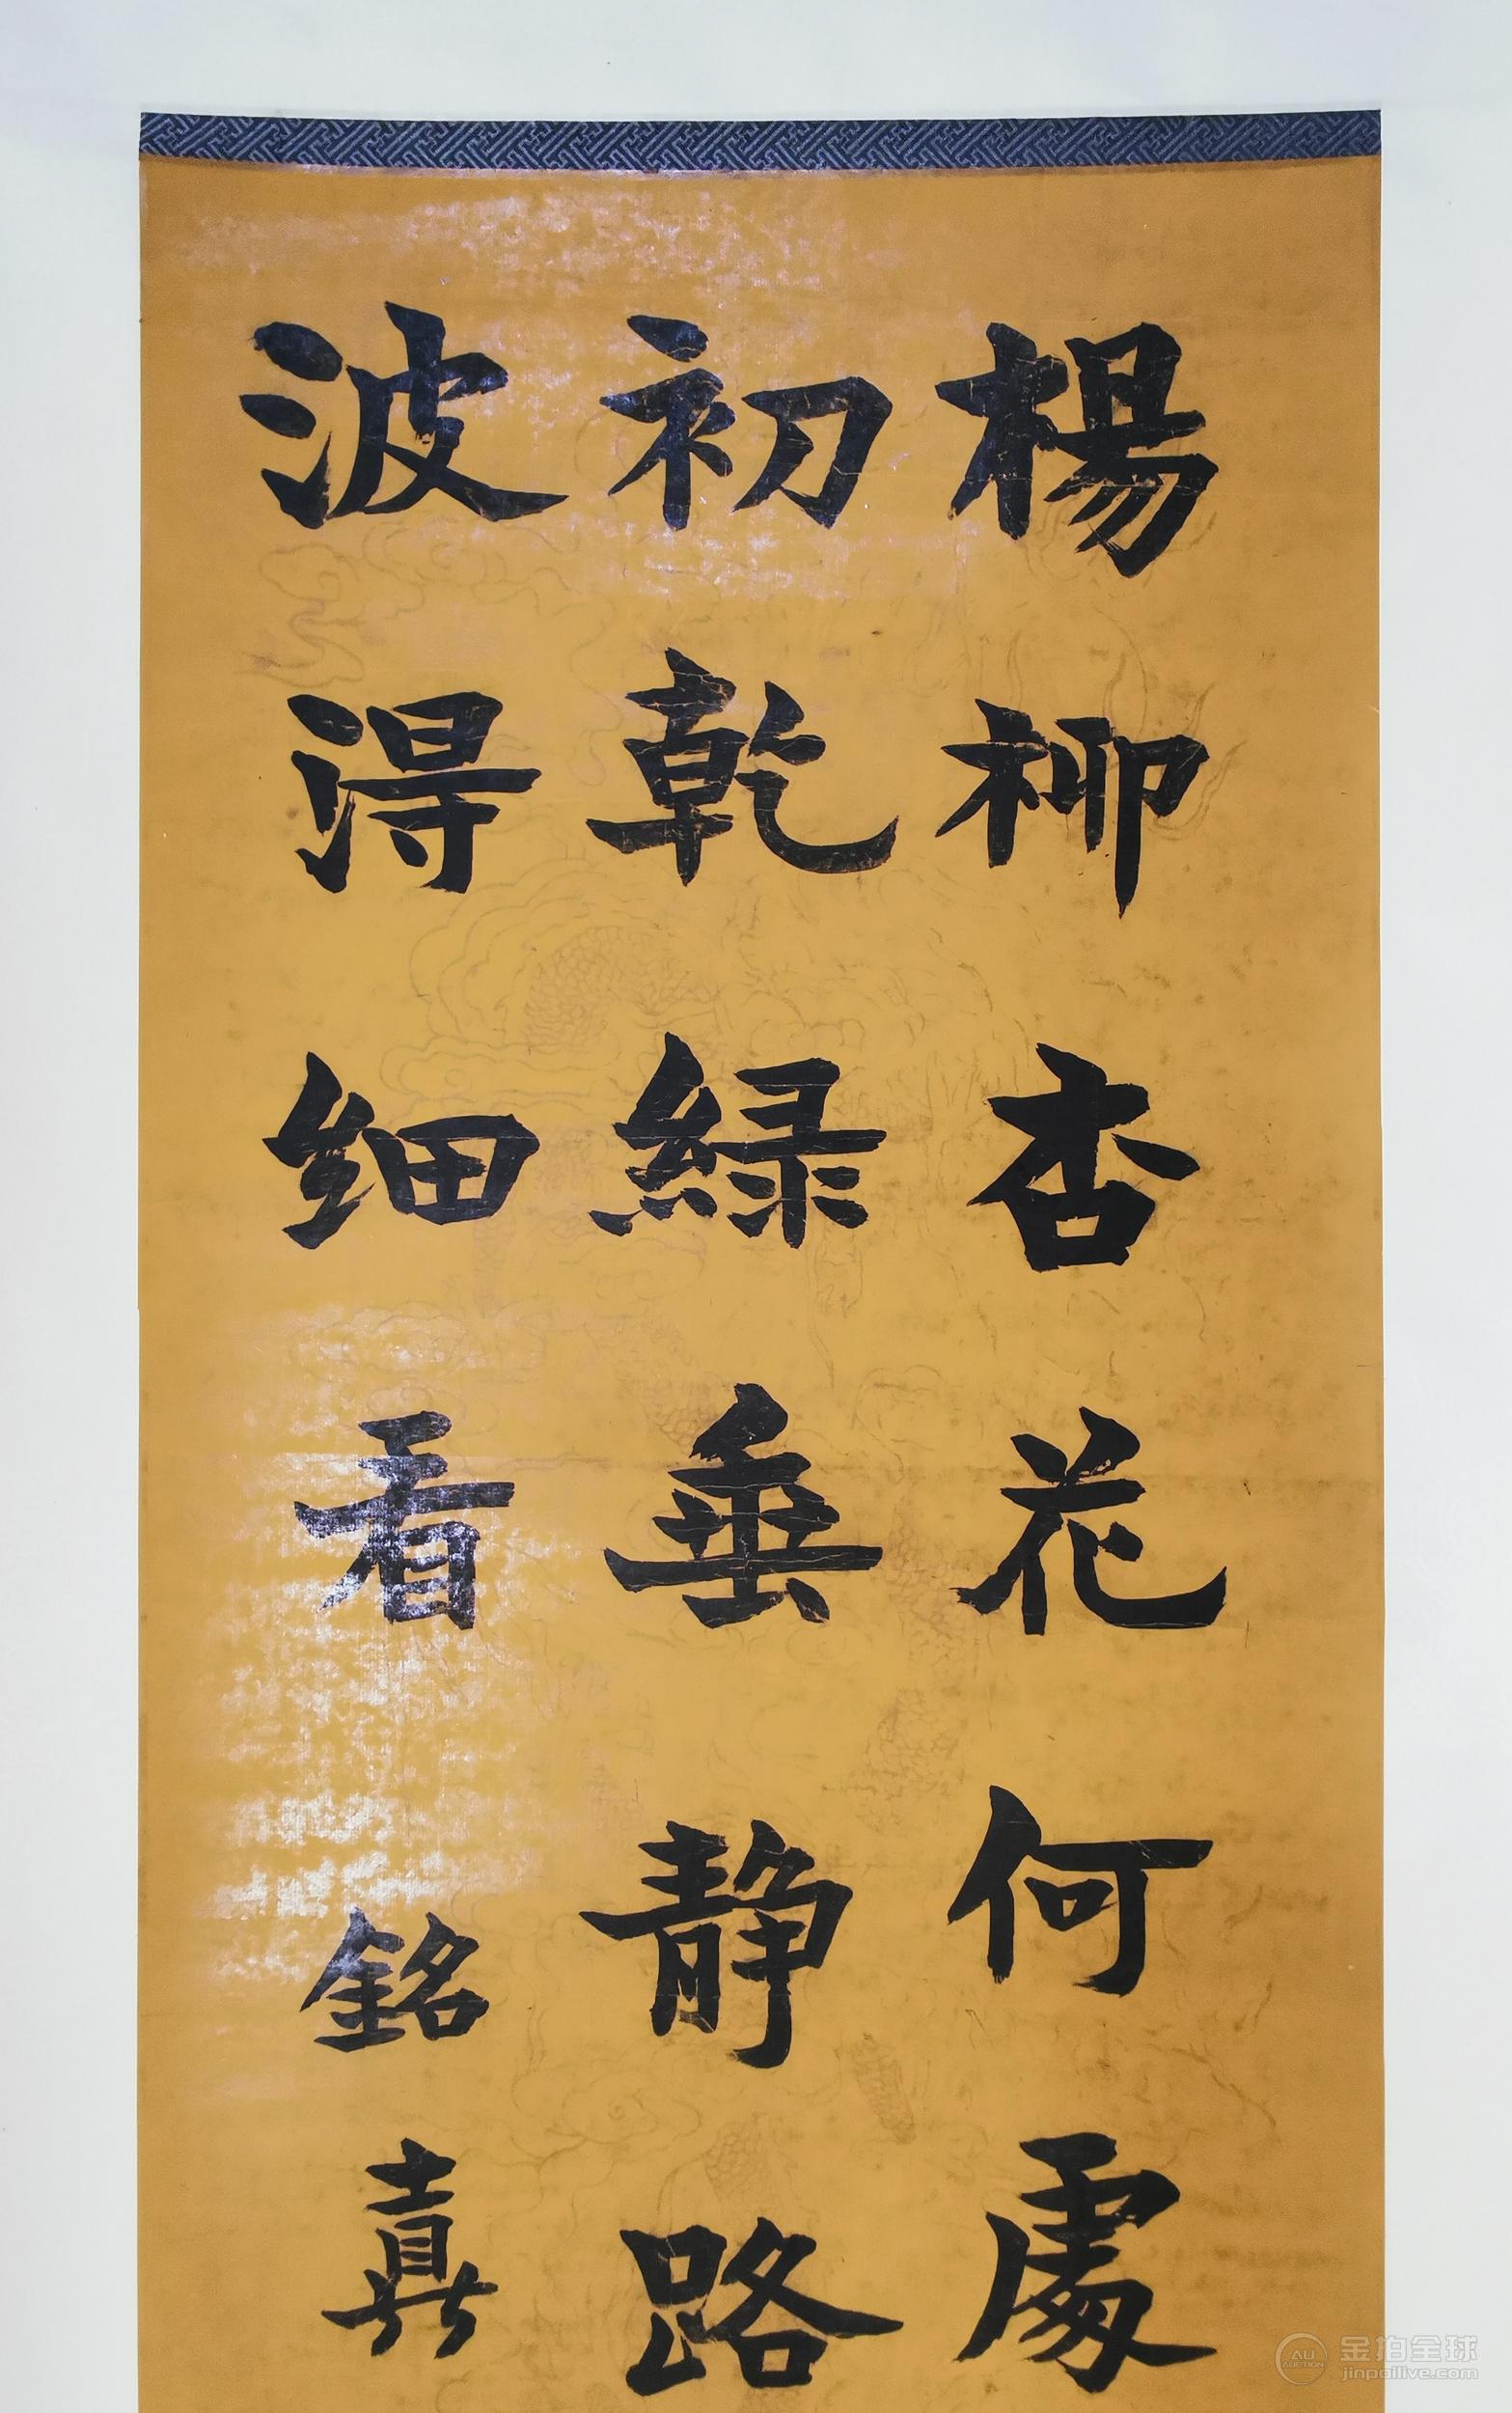 楊柳杏花何處
初乾緑垂静路
波淂細看
銘
金拍全球
jinpailive.com
AU
AUCTION